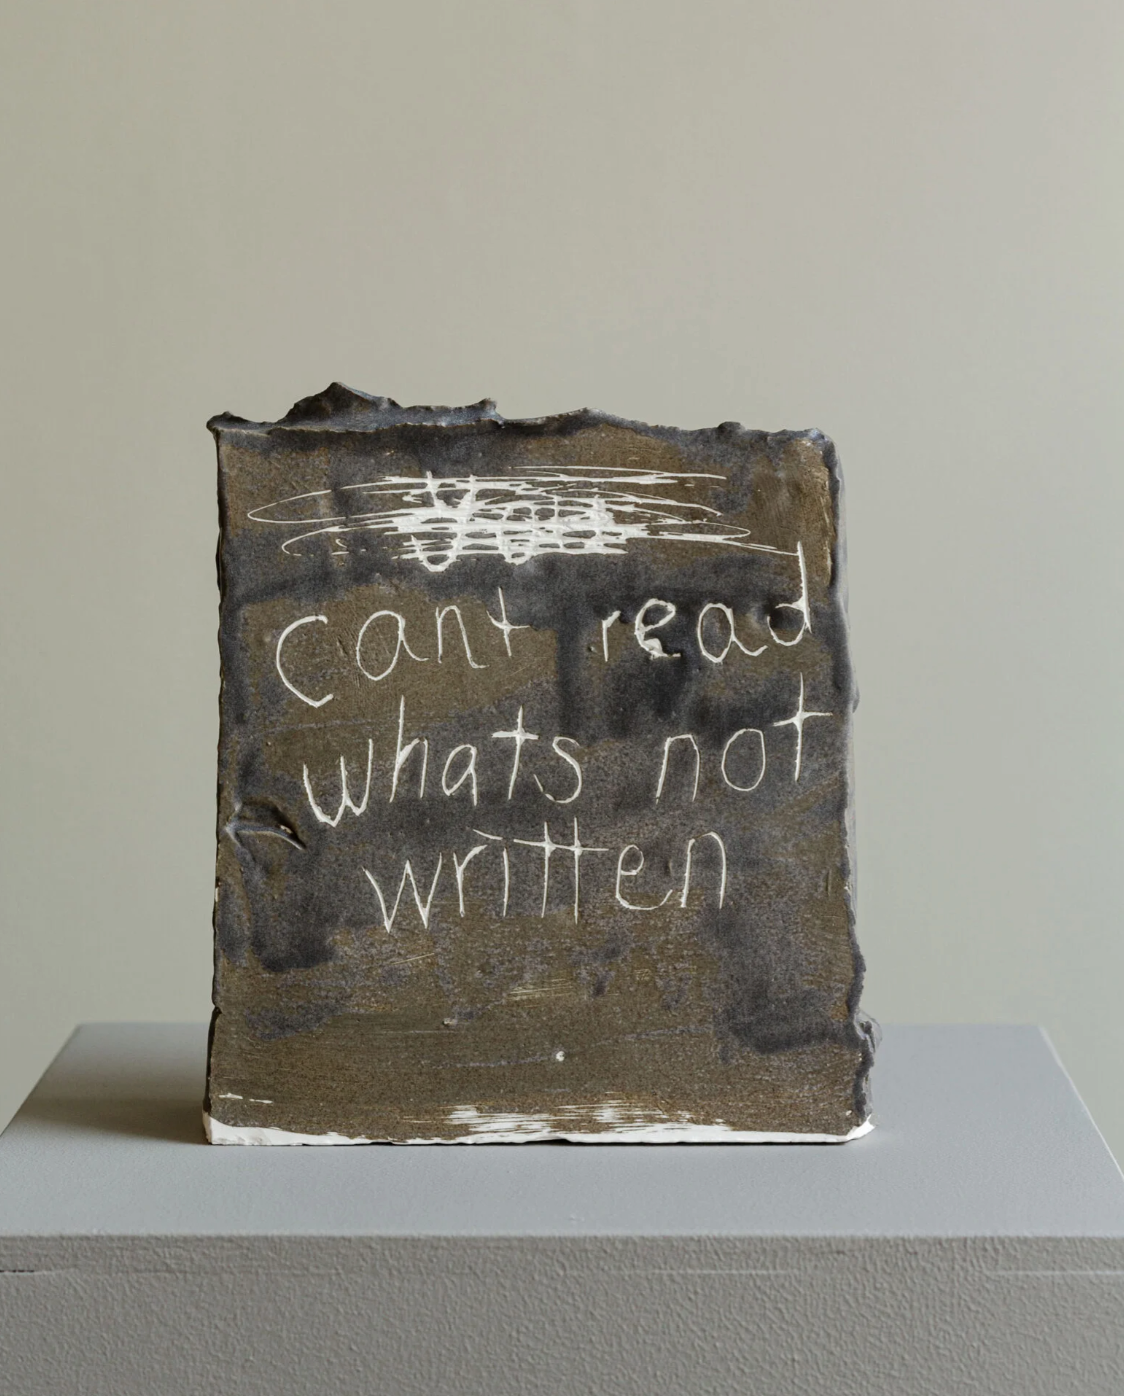 cant read
whats not
written